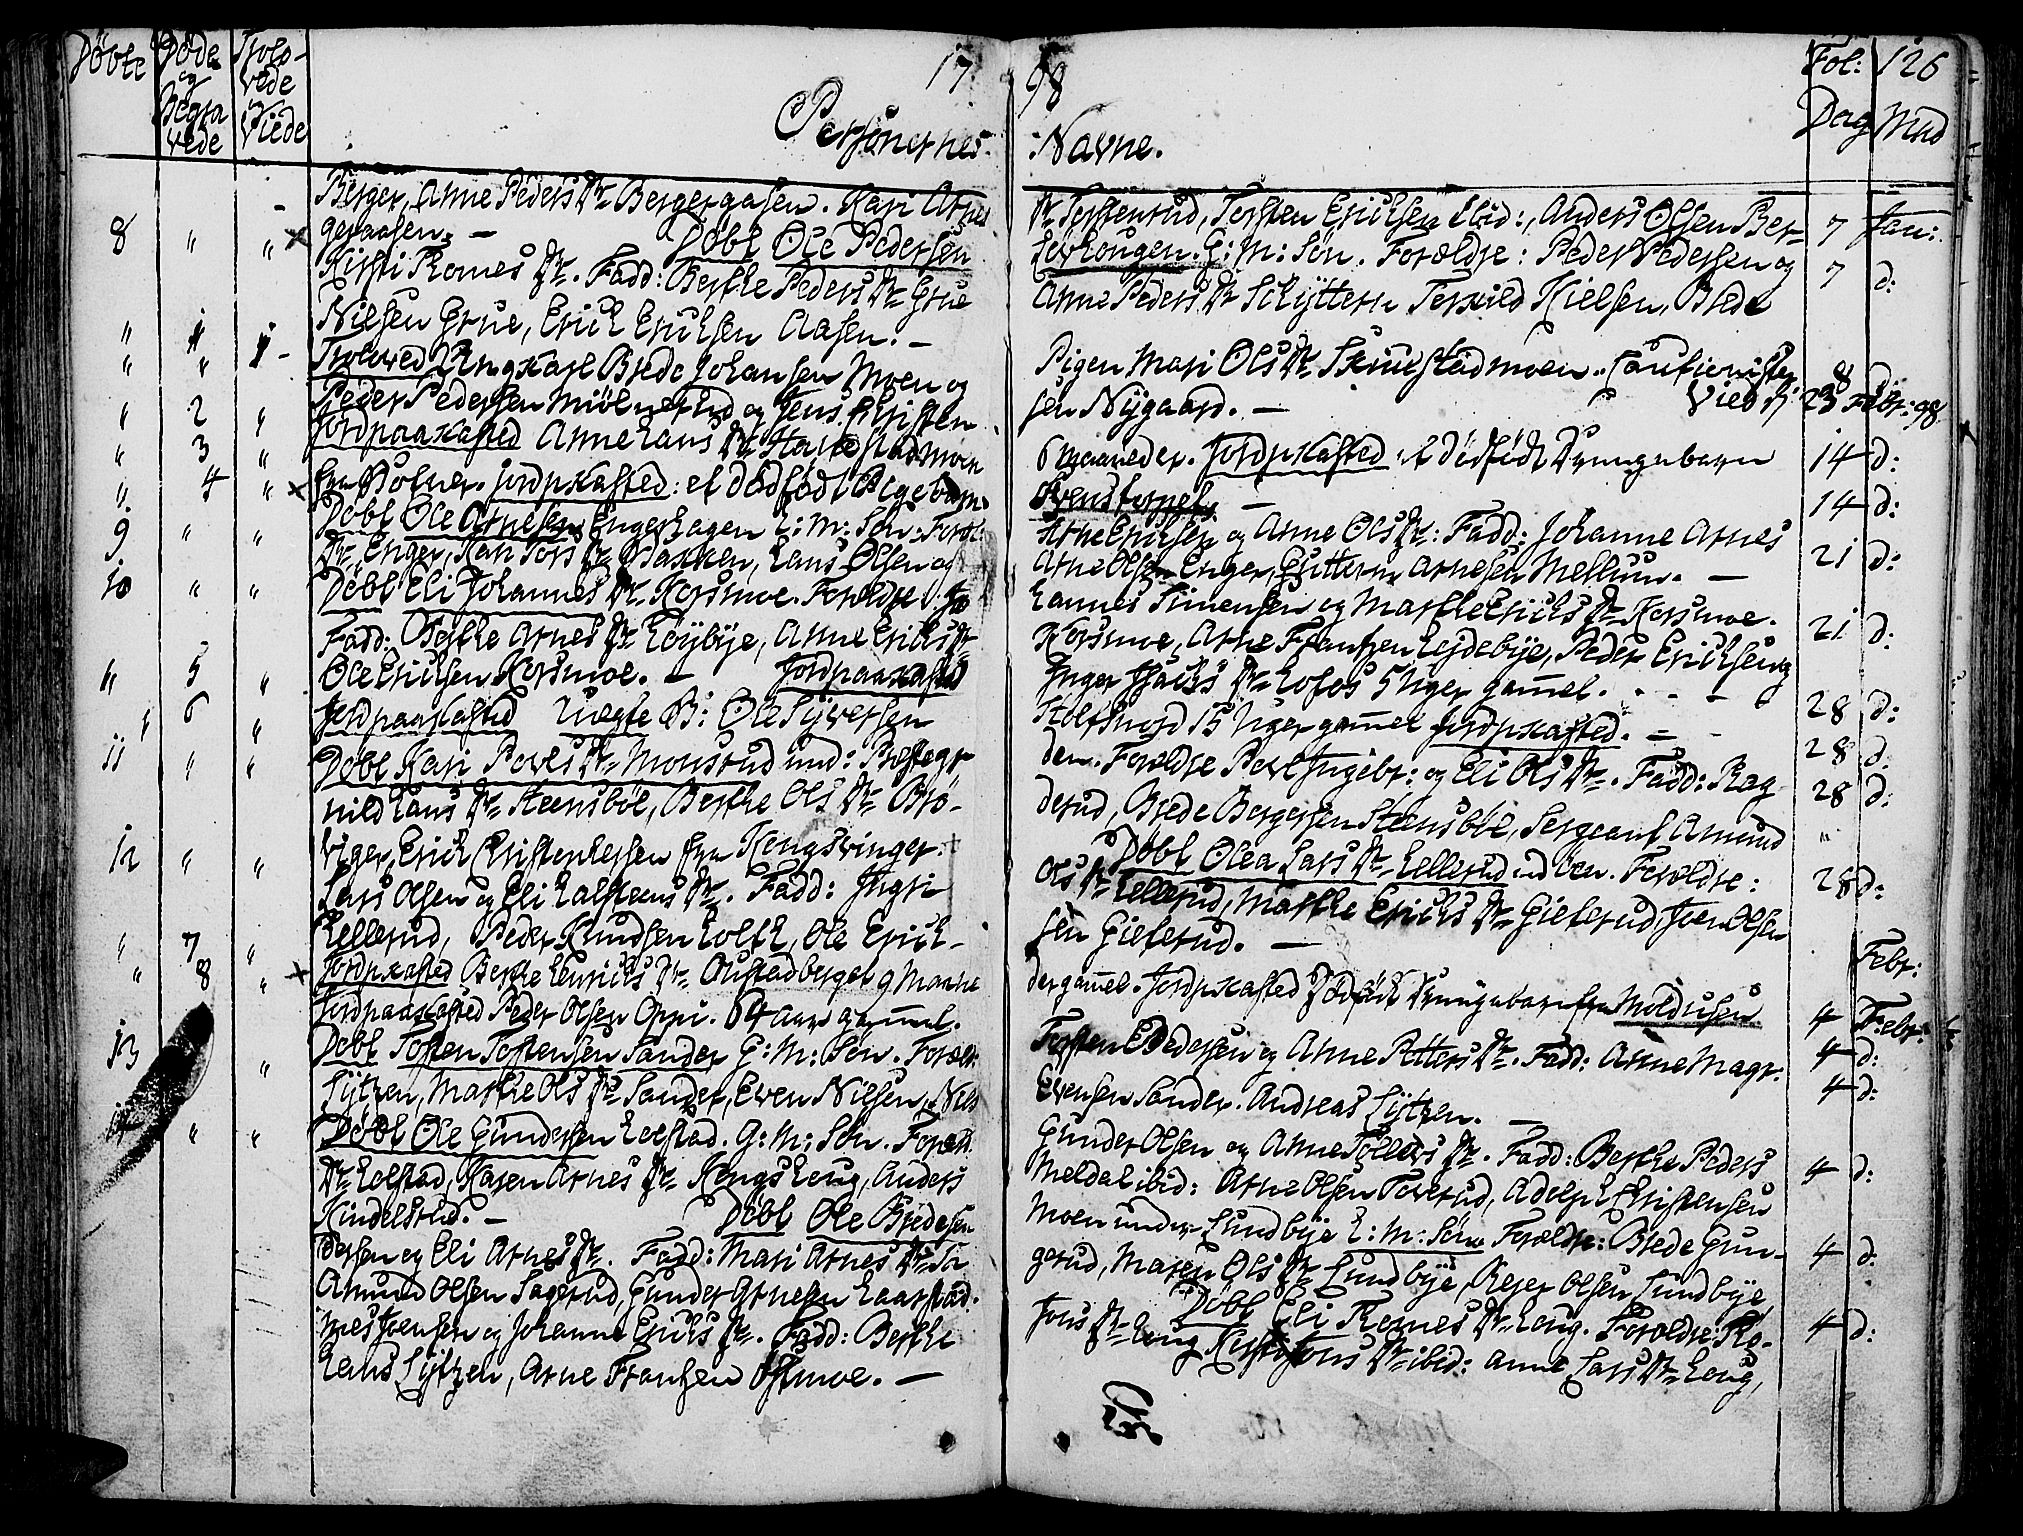 Döbte Döde og Begravede Trolovede og Viede 1798 Fol: 126
Personernes Navne. Dag Mnd
Berger, Anne Peders Dr. Bergergasen. Kari Arnes Dr. Torstenrud, Torsten Erichsen ibid:, Anders Olsen Ber- 7 Jan:
8 " " geraasen. — Döbt Ole Pedersen Lovhougen. G: M: Sön. Forældre: Peder Pedersen og 7 d:
Kirsti Romes Dr. Fadd: Berthe Peders Dr. Grue Anne Peders Dr. Schytteren Terkild Nielsen, Brede
Nielsen Grue, Erich Erichsen Aasen. —
" " 1 Troloved Ungkarl Brede Johansen Moen og Pigen Mari Ols Dr. Skinnestadmoen. Cautionister 8 d:
Peder Pedersen Miölnerud og Jens Christen- sen Nygaard. — Vied d: 23 Febr: 98.
" 2 " Jordpaakasted Anne Lars Dr. Harrestadmoen 6 maaneder. Jordpkasted et dödfödt Drengebarn 14 d:
" 3 "
" 4 " fra Holmer. Jordpkasted: et dödfödt Pigebarn Ovenstoppel. — 14 d:
9 " " Döbt Ole Arnesen Engershagen E: M: Sön: Foræl: Arne Erichsen og Anne Ols Dr: Fadd: Johanne Arnes
Dr. Enger, Kari Tors Dr. Bakken, Lars Olsen og Arne Olsen Enger, Guttorm Arnesen Mellum. — 21 d:
10 " " Döbt Eli Johannes Dr. Korsmoe. Forældre: Jo- hannes Simensen og Marthe Erichs Dr. Korsmoe.
Fadd: Berthe Arnes Dr. Löybye, Anne Erichs Dr. Korsmoe, Arne Frantzen Lejdebye, Peder Erichsen og 21 d:
" 5 " Ole Erichsen Korsmoe. — Jordpaakasted Inger Isachs Dr. Lofos 5 Uger gamel. — 28 d:
" 6 " Jordpaakasted Uægte B: Ole Syversen Holtsnord 15 Uger gamel Jordpkasted. — 28 d:
11 " " Döbt Kari Povels Dr. Monsrud und: Præstegr den. Forældre Povel Ingebr: og Eli Ols Dr. Fadd: Rag- 28 d:
nild Lars Dr. Steensböl, Berthe Ols Dr. Brö- derud, Brede Bergersen Steensböl, Sergeant Amund "
12 " " viger, Erich Christophersen fra Kongsvinger. Döbt Olea Lars Dr. Lellerud ud Oen. Forældre: 28 d:
Lars Olsen og Eli Halsteens Dr. Fadd: Ingri Ols Dr. Lellerud, Marthe Erichs Dr. Gieterud, Iver Olsen
Lellerud, Peder Knudsen Holth, Ole Erich- sen Gieterud. —
" 7 " Jordpkasted Berthe Henrichs Dr. Oustadberget 9 Maane- der gamel. Jordpkasted Dödfödt Drengebarn fra Moldusen Febr:
" 8 " Jordpaakasted Peder Olsen Oppi. 64 aar gamel. 4 Febr:
13 " Döbt Tosten Tostensen Sander G: M: Sön. Foræl: Torsten Pedersen og Anne Petters Dr. Fadd: Anne Magr. 4 d:
Lytzen, Marthe Ols Dr. Sander, Even Nielsen, Nils Evensen Sander. Andreas Lytzen. — 4 d:
14 " " Döbt Ole Gundersen Lolstad. G: M: Sön. Foræld. Gunder Olsen og Anne Tollevs Dr. Fadd: Berthe Peders
Dr. Lolstad, Karen Arnes Dr. Kongshoug, Anders Meldal ibid: Arne Olsen Toverud, Adolph Christensen 4 d:
Kindelsrud. — Döbt Ole Bredesen Moen under Lundbye E: M: Sön Forældre: Brede Gun-
dersen og Eli Arnes Dr. Fadd: Mari Arnes Dr. Sa- gerud, Maren Ols Dr. Lundbye, Rejer Olsen Lundbye, 4 d:
Amund Olsen Sagerud, Gunder Arnesen Haarstad. Döbt Eli Romes Dr. Houg. Forældre: Ro-
mes Ivensen og Johanne Erichs Dr. Fadd: Berthe Jons Dr. Houg Kirsti Jons Dr. ibid: Anne Lars Dr. Houg, 4 d:
Hans Lytzen, Arne Frantzen Ostmoe. —